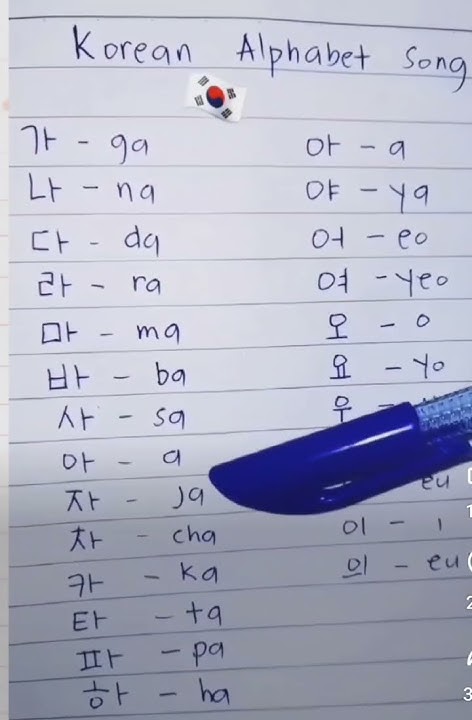 Korean Alphabet Song
가 - ga
나 - na
다 - da
라 - ra
마 - ma
바 - ba
사 - sa
아 - a
자 - ja
차 - cha
카 - ka
타 - ta
파 - pa
하 - ha
아 - a
야 - ya
어 - eo
여 - yeo
오 - o
요 - yo
우 -
eu
이 - i
의 - eu